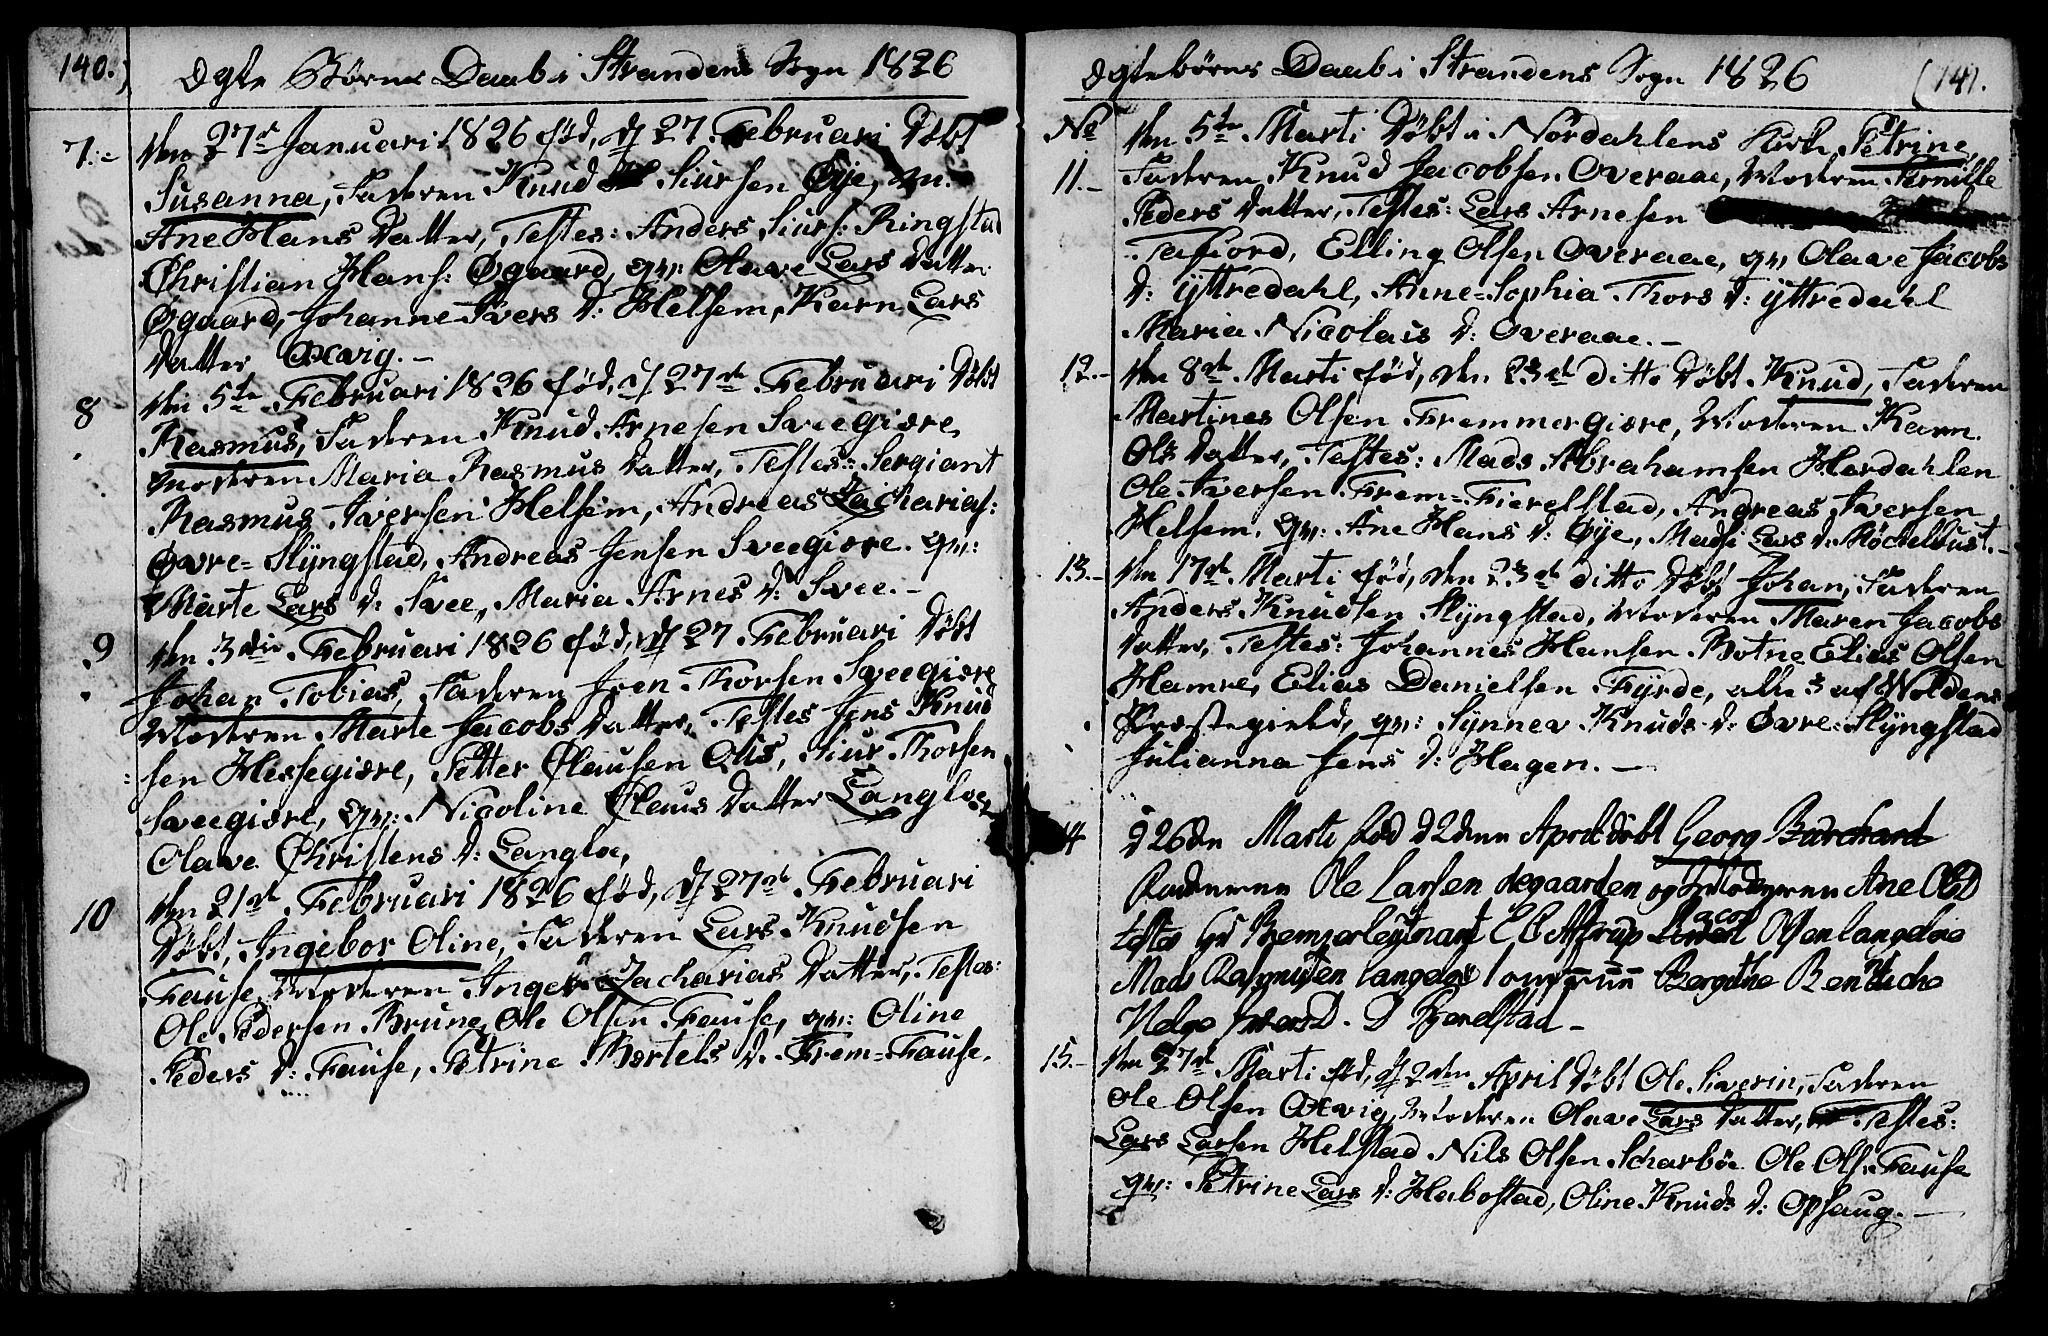 140.)
Øgte Børns Daab i Strandens Sogn 1826
7.- den 27de Januari 1826 fød, d 27 Februari Døbt
Susanna, Faderen Knud Siursen Øye, M.
Ane Hans Datter, Testes: Anders Siurs: Ringstad
Christian Hans: Øgaard, qv: Olave Lars Datter
Øgaard, Johanne Ivers D: Helsem, Karn Lars
Datter Oxvig.-
8 den 5te Februari 1826 fød, d 27de Februari Døbt
Rasmus, Faderen Knud Arnesen Sveegiære,
Moderen Maria Rasmus Datter, Testes: Sergiant
Rasmus Iversen Helsem, Andreas Zacharias:
Øvre=Slyngstad, Andreas Jensen Sveegiære. qv:
Marte Lars D: Svee, Maria Arnes D: Svee.-
9 den 3die Februari 1826 fød, d 27 Februari Døbt
Johan Tobias, Faderen Joen Thorsen Sveegiære
Moderen Marte Jacobs Datter, Testes Jens Knud
sen Hessegiære, Petter Clausen Olis, Siur Thorsen
Sveegiære, qv: Nicoline Claus Datter Langloe,
Olave Christens D: Langloe,
10 den 21de Februari 1826 fød, d 27de Februari
Døbt, Ingebor Oline, Faderen Lars Knudsen
Fause, Moderen Inger Zacharias Datter, Testes:
Ole Pedersen Brune, Ole Olsen Fause, qv: Oline
Peders D: Fause, Petrine Bertels D. Frem=Fause.
Øgtebørns Daab i Strandens Sogn 1826
(141.
No den 5te Marti Døbt i Nordahlens Kirke Petrine,
11.- Faderen Knud Jacobsen Overaae, Moderen Pernille
Peders Datter, Testes: Lars Arnesen
Tafiord, Elling Olsen Overaae, qv. Olave Jacobs
D: Yttredahl, Anne=Sophia Thors D: Yttredahl
Maria Nicolais D: Overaae.-
12.- den 8de Marti fød, den 23de ditto Døbt Knud, Faderen
Martines Olsen Fremmergiære, Moderen Karn
Ols Datter, Testes: Mads Abrahamsen Hordahlen
Ole Iversen Frem=Fierelstad, Andreas Iversen
Helsem, qv: Ane Hans D: Øye, Madsi Lars D: Möckelbust.-
13.- den 17de Marti fød, den 23de ditto Døbt Johan, Faderen
Anders Knudsen Slyngstad, Moderen Maren Jacobs
Datter, Testes: Johannes Hansen Botne Elias Olsen
Hamre, Elias Danielsen Fyrde, alle 3 af Woldens
Præstegield, qv: Synnev Knuds D: Øvre=Slyngstad
Julianna Jens D: Hagen.-
14 d 26de Marti fød d 2den April døbt Georg Burchard
Faderen Ole Larsen øegaarden og Moderen Ane Ols D
testes Olsen langeloe
Mads Rasmusen langeloe Bergithe Benedicte
Helge D. Fierelstad-
15.- den 27de Marti fød, d 2den April Døbt Ole Sverin, Faderen
Ole Olsen Oxvig, Moderen Olave Lars Datter, Testes:
Lars Larsen Helstad Nils Olsen Scharbøe Ole Ols: Fause
qv: Petrine Lars D: Habostad, Oline Knuds D: Opsaug.-